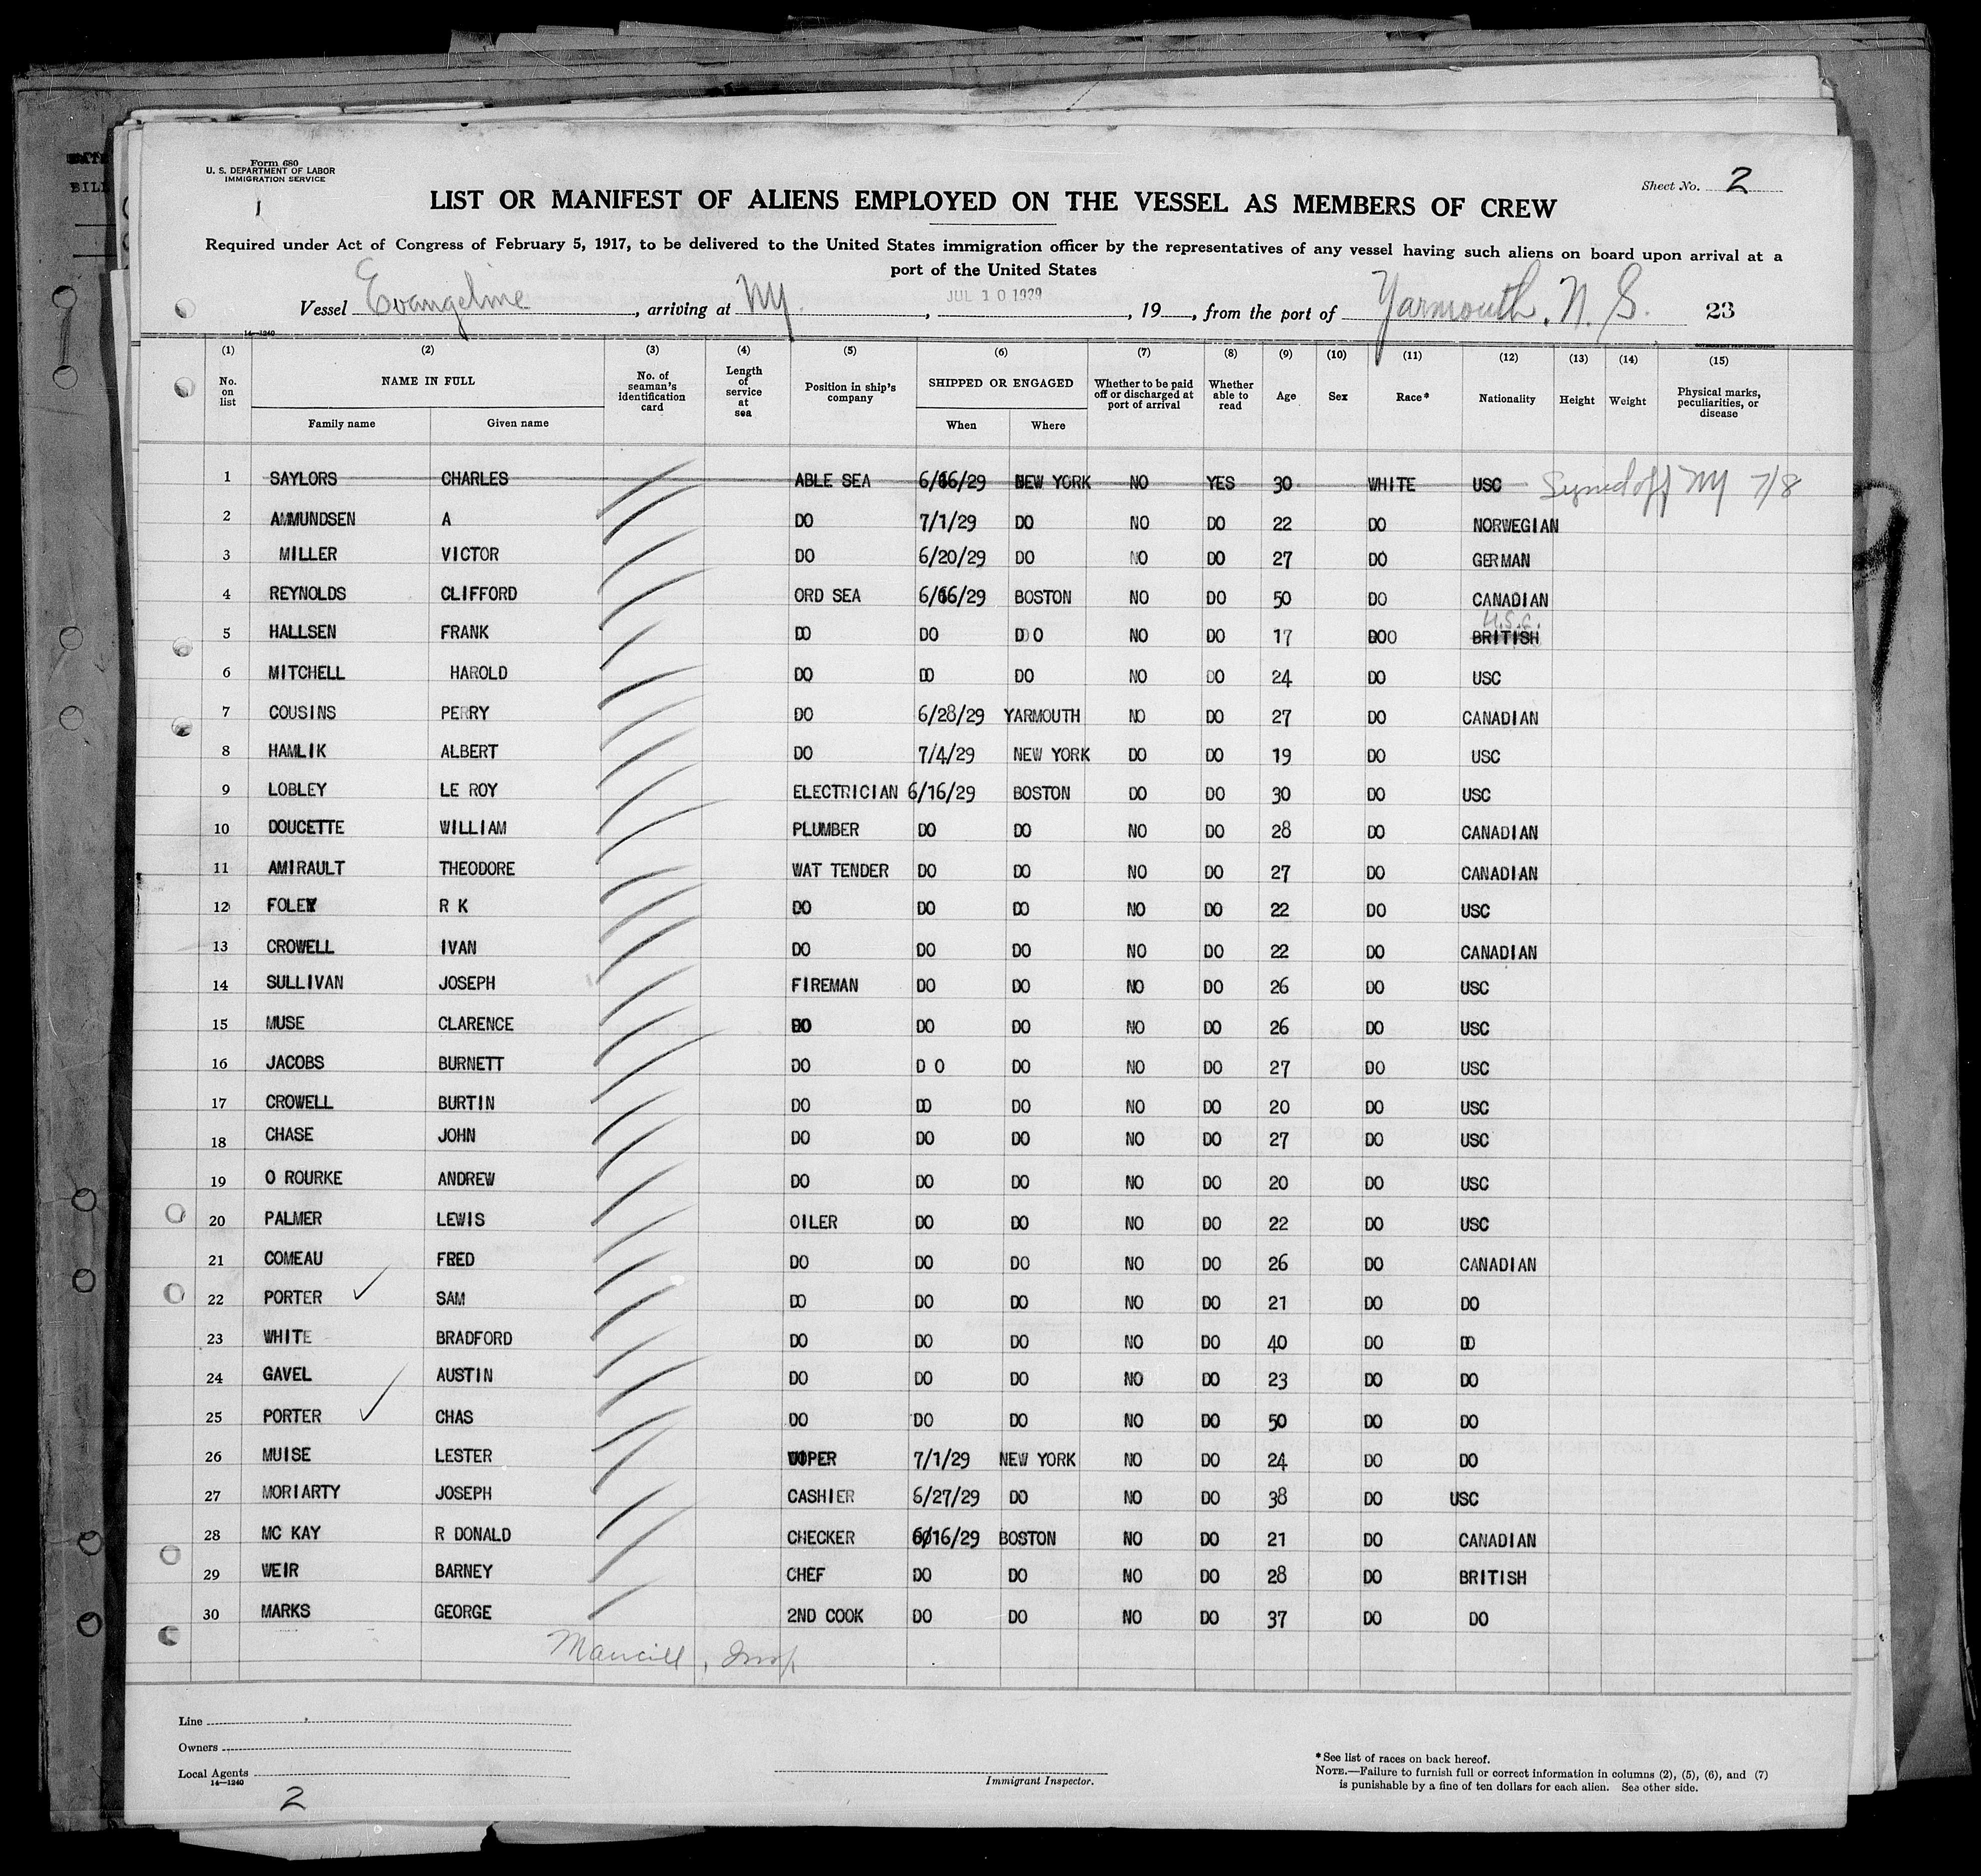 Form 680
U. S. DEPARTMENT OF LABOR
IMMIGRATION SERVICE
1
Sheet No. 2
LIST OR MANIFEST OF ALIENS EMPLOYED ON THE VESSEL AS MEMBERS OF CREW
Required under Act of Congress of February 5, 1917, to be delivered to the United States immigration officer by the representatives of any vessel having such aliens on board upon arrival at a
port of the United States
Vessel Evangeline, arriving at NY., JUL 10 1929, 19__, from the port of Yarmouth, N. S. 23
14—1240
(1) (2) (3) (4) (5) (6) (7) (8) (9) (10) (11) (12) (13) (14) (15)
No. on list NAME IN FULL Family name Given name No. of seaman's identification card Length of service at sea Position in ship's company SHIPPED OR ENGAGED When Where Whether to be paid off or discharged at port of arrival Whether able to read Age Sex Race* Nationality Height Weight Physical marks, peculiarities, or disease
1 SAYLORS CHARLES ABLE SEA 6/16/29 NEW YORK NO YES 30 WHITE USC Signed off NY 7/8
2 AMMUNDSEN A DO 7/1/29 DO NO DO 22 DO NORWEGIAN
3 MILLER VICTOR DO 6/20/29 DO NO DO 27 DO GERMAN
4 REYNOLDS CLIFFORD ORD SEA 6/16/29 BOSTON NO DO 50 DO CANADIAN
5 HALLSEN FRANK DO DO D O NO DO 17 DOO BRITISH U.S.C.
6 MITCHELL HAROLD DO DO DO NO DO 24 DO USC
7 COUSINS PERRY DO 6/28/29 YARMOUTH NO DO 27 DO CANADIAN
8 HAMLIK ALBERT DO 7/4/29 NEW YORK DO DO 19 DO USC
9 LOBLEY LE ROY ELECTRICIAN 6/16/29 BOSTON DO DO 30 DO USC
10 DOUCETTE WILLIAM PLUMBER DO DO NO DO 28 DO CANADIAN
11 AMIRAULT THEODORE WAT TENDER DO DO NO DO 27 DO CANADIAN
12 FOLEY R K DO DO DO NO DO 22 DO USC
13 CROWELL IVAN DO DO DO NO DO 22 DO CANADIAN
14 SULLIVAN JOSEPH FIREMAN DO DO NO DO 26 DO USC
15 MUSE CLARENCE DO DO DO NO DO 26 DO USC
16 JACOBS BURNETT DO D O DO NO DO 27 DO USC
17 CROWELL BURTIN DO DO DO NO DO 20 DO USC
18 CHASE JOHN DO DO DO NO DO 27 DO USC
19 O ROURKE ANDREW DO DO DO NO DO 20 DO USC
20 PALMER LEWIS OILER DO DO NO DO 22 DO USC
21 COMEAU FRED DO DO DO NO DO 26 DO CANADIAN
22 PORTER SAM DO DO DO NO DO 21 DO DO
23 WHITE BRADFORD DO DO DO NO DO 40 DO DO
24 GAVEL AUSTIN DO DO DO NO DO 23 DO DO
25 PORTER CHAS DO DO DO NO DO 50 DO DO
26 MUISE LESTER WIPER 7/1/29 NEW YORK NO DO 24 DO DO
27 MORIARTY JOSEPH CASHIER 6/27/29 DO NO DO 38 DO USC
28 MC KAY R DONALD CHECKER 6/16/29 BOSTON NO DO 21 DO CANADIAN
29 WEIR BARNEY CHEF DO DO NO DO 28 DO BRITISH
30 MARKS GEORGE 2ND COOK DO DO NO DO 37 DO DO
Mancill, Insp
Line
Owners
Local Agents
14—1240
2
Immigrant Inspector.
*See list of races on back hereof.
NOTE.—Failure to furnish full or correct information in columns (2), (5), (6), and (7)
is punishable by a fine of ten dollars for each alien. See other side.